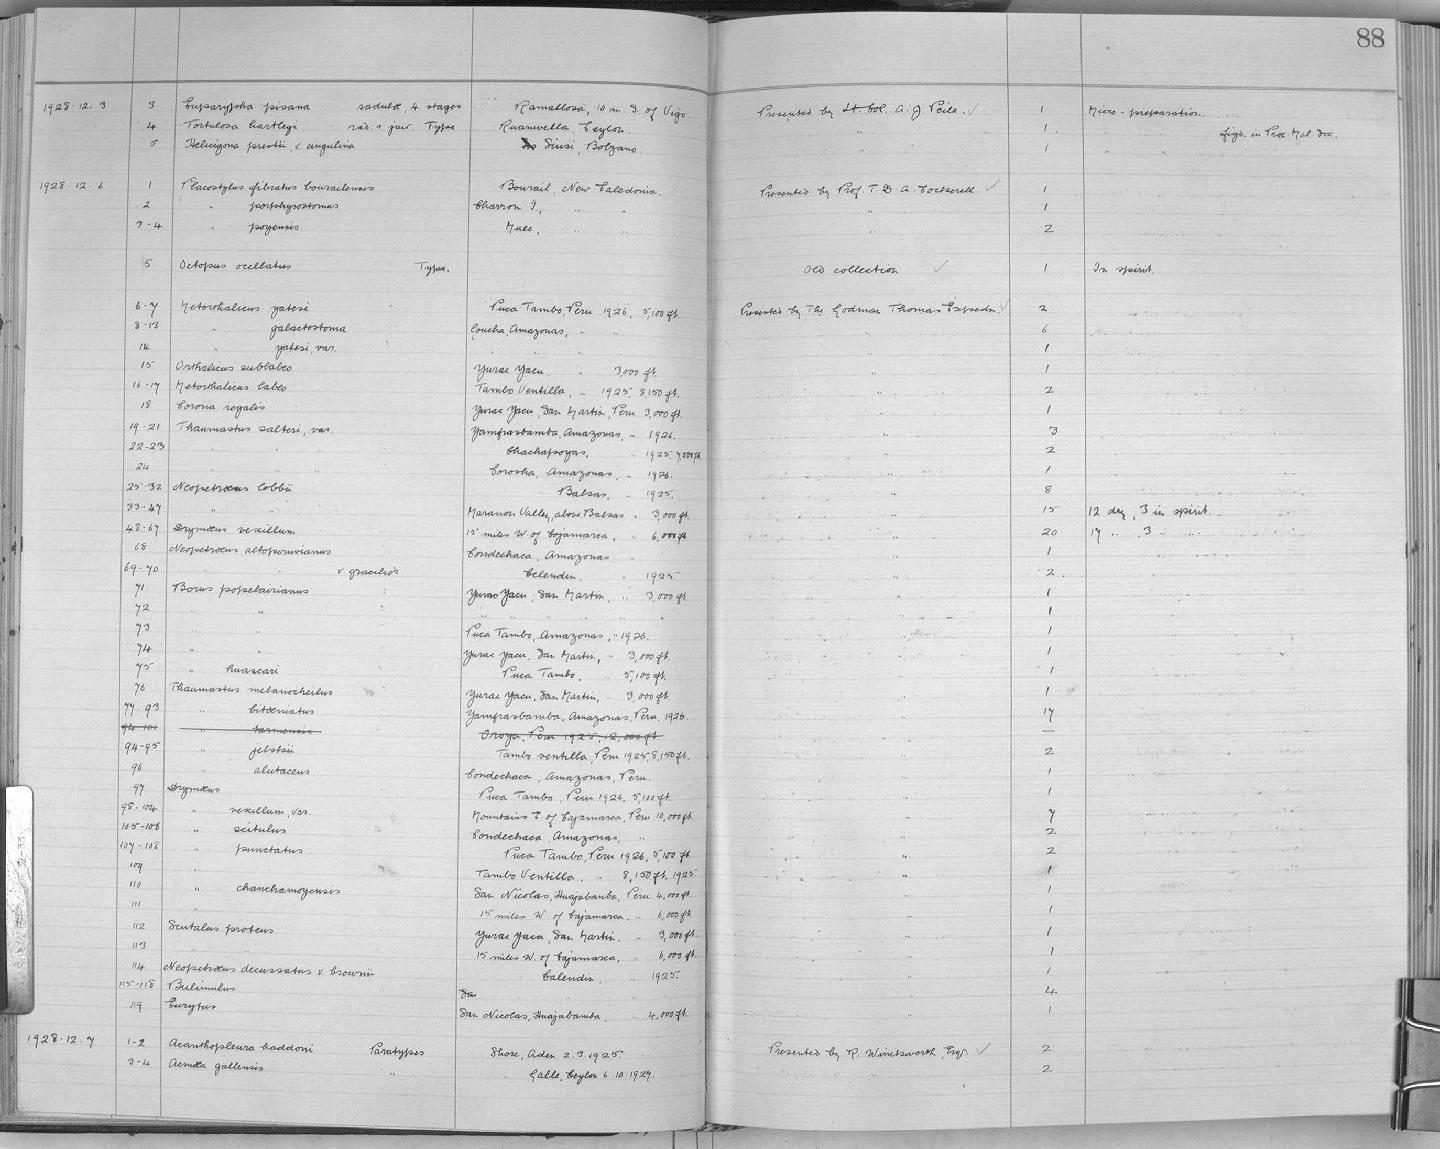 88
1928.12.3 3 Euparypha pisana radulæ 4 stages Ramallosa, 10 m. S. of Vigo. Presented by Lt. Col. A. J. Peile. ✓ 1 Micro-preparation.
4 Tortulosa hartleyi rad. & jaw. Type Ruanwella Ceylon. " " " 1 " " figd. in Proc. Mal. Soc.
5 Helicigona prestii, v. angulina Siusi, Bolzano. " " " 1 " "
1928.12.6 1 Placostylus fibratus bourailensis Bourail, New Caledonia. Presented by Prof. T. D. A. Cockerell. ✓ 1
2 " porphyrostomus Charron I., " " " 1
3-4 " poyensis Mueo, " " " 2
5 Octopus ocellatus Type. Old collection ✓ 1 In spirit.
6-7 Metorthalicus yatesi Puca Tambo, Peru 1926, 5,100 ft. Presented by The Godman Thomas Expedn. ✓ 2
8-13 " galactostoma Concha, Amazonas, " " " 6
14 " yatesi, var. " " " 1
15 Orthalicus sublabeo Yurac Yacu, " 3,000 ft. " 1
16-17 Metorthalicus labeo Tambo Ventilla, " 1925, 8,150 ft. " 2
18 Corona regalis Yurac Yacu, San Martin, Peru 3,000 ft. " 1
19-21 Thaumastus salteri, var. Yamfrasbamba, Amazonas, " 1926. " 3
22-23 " " " Chachapoyas, " 1925 7,500 ft. " 2
24 " " " Corosha, Amazonas, " 1926. " 1
25-32 Neopetræus lobbii Balsas, " 1925. " 8
33-47 " " Maranon Valley, above Balsas " 3,000 ft. " 15 12 dry, 3 in spirit.
48-67 Drymæus vexillum 15 miles W of Cajamarca, " 6,000 ft. " 20 17 " 3 " "
68 Neopetræus altoperuvianus Condechaca, Amazonas " " 1
69-70 " " v. gracilior Celendin, " 1925 " 2
71 Borus popelairianus Yurac Yacu, San Martin, " 3,000 ft. " 1
72 " " " " " " " " " 1
73 " " Puca Tambo, Amazonas, " 1926. " 1
74 " " Yurac Yacu, San Martin, " 3,000 ft. " 1
75 " huascari Puca Tambo, " 5,100 ft. " 1
76 Thaumastus melanocheilus Yurac Yacu, San Martin, " 3,000 ft. " 1
77-93 " bitæniatus Yamfrasbamba, Amazonas, Peru. 1926. " 17
94-101 " tarmensis Oroya, Peru 1925, 12,000 ft. —
94-95 " jelskii Tambo ventilla, Peru 1925, 8,150 ft. " 2
96 " alutaceus Condechaca, Amazonas, Peru. " 1
97 Drymæus Puca Tambo, Peru 1926, 5,100 ft. " 1
98-104 " vexillum, var. Mountains E. of Cajamarca, Peru 10,000 ft. " 7
105-106 " scitulus Condechaca, Amazonas, " " 2
107-108 " punctatus Puca Tambo, Peru 1926, 5,100 ft. " 2
109 " Tambo Ventilla, " 8,150 ft. 1925 " 1
110 " chanchamoyensis San Nicolas, Huajabamba, Peru 4,000 ft. " 1
111 " 15 miles W. of Cajamarca, " 6,000 ft. " 1
112 Scutalus proteus Yurac Yacu, San Martin, " 3,000 ft. " 1
113 " " 15 miles W. of Cajamarca, " 6,000 ft. " 1
114 Neopetræus decussatus v. brownii Calendin, " 1925. " 1
115-118 Bulimulus " " " " 4
119 Eurytus San Nicolas, Huajabamba, " 4,000 ft. " 1
1928.12.7 1-2 Acanthopleura haddoni Paratypes Shore, Aden 2.3.1925. Presented by R. Winckworth, Esq. ✓ 2
3-4 Acmæa gallensis " " Galle, Ceylon 6.10.1927. 2